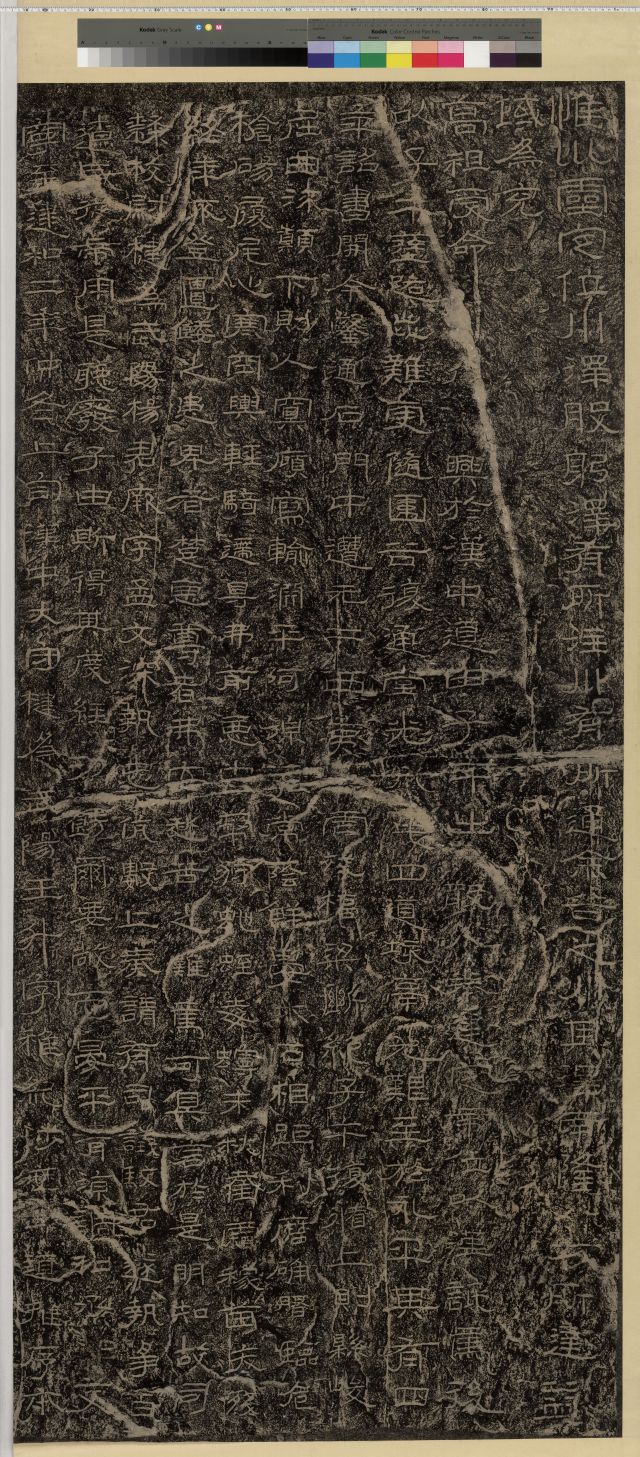 惟巛靈定位川澤股躬澤有所注川有所通余谷之川其澤南隆八方所達益
域為充
高祖受命興於漢中道由子午出散入秦建定帝位以漢詆焉後
以子午塗路歰難更隨圍谷復通堂光凡此四道垓鬲尤艱至於永平其有四
年詔書開余鑿通石門中遭元二西夷虐殘橋梁斷絕子午復循上則縣峻
屈曲流顛下則入冥廎寫輸淵平阿湶泥常蔭鮮晏木石相距利磨确磐臨危
槍碭履尾心寒空輿輕騎遰㝵弗前惡虫幣狩虵蛭毒蟃未秋截霜稼苗夭殘
終年不登匱餧之患卑者楚惡尊者弗安愁苦之難焉可具言於是明知故司
隸校尉楗為武陽楊君厥字孟文深執忠伉數上奏請有司議駮君遂執爭百
遼咸從帝用是聽廢子由斯得其度經功飭爾要敞而晏平清涼調和烝烝艾
寧至建和二年仲冬上旬漢中大守楗為武陽王升字稚紀涉歷山道推序本